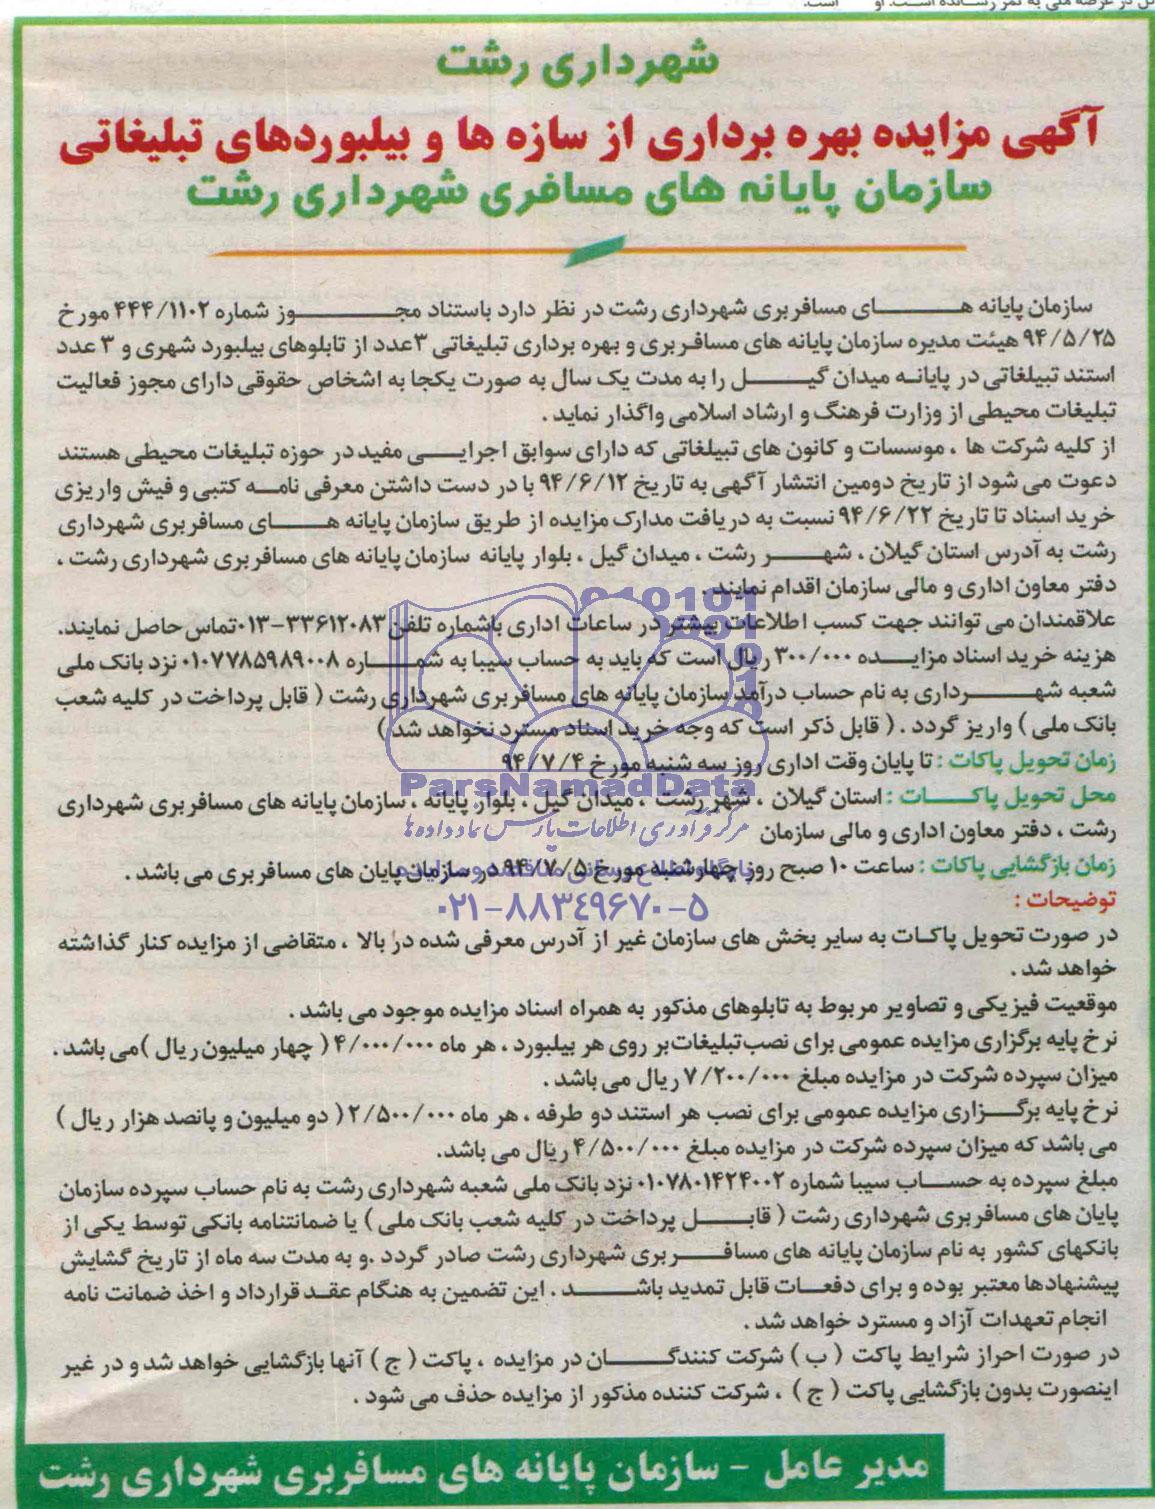 شهرداری رشت
آگهی مزایده بهره برداری از سازه ها و بیلبوردهای تبلیغاتی
سازمان پایانه های مسافری شهرداری رشت
سازمان پایانه های مسافربری شهرداری رشت در نظر دارد باستناد مجوز شماره ۴۴۴/۱۱۰۲ مورخ
۹۴/۵/۲۵ هیئت مدیره سازمان پایانه های مسافربری و بهره برداری تبلیغاتی ۳عدد از تابلوهای بیلبورد شهری و ۳ عدد
استند تبیلغاتی در پایانه میدان گیل را به مدت یک سال به صورت یکجا به اشخاص حقوقی دارای مجوز فعالیت
تبلیغات محیطی از وزارت فرهنگ و ارشاد اسلامی واگذار نماید .
از کلیه شرکت ها ، موسسات و کانون های تبیلغاتی که دارای سوابق اجرایی مفید در حوزه تبلیغات محیطی هستند
دعوت می شود از تاریخ دومین انتشار آگهی به تاریخ ۹۴/۶/۱۲ با در دست داشتن معرفی نامه کتبی و فیش واریزی
خرید اسناد تا تاریخ ۹۴/۶/۲۲ نسبت به دریافت مدارک مزایده از طریق سازمان پایانه های مسافربری شهرداری
رشت به آدرس استان گیلان ، شهر رشت ، میدان گیل ، بلوار پایانه سازمان پایانه های مسافربری شهرداری رشت ،
دفتر معاون اداری و مالی سازمان اقدام نمایند .
علاقمندان می توانند جهت کسب اطلاعات بیشتر در ساعات اداری باشماره تلفن ۳۳۶۱۲۰۸۳-۰۱۳تماس حاصل نمایند.
هزینه خرید اسناد مزایده ۳۰۰/۰۰۰ ریال است که باید به حساب سیبا به شماره ۰۱۰۷۷۸۵۹۸۹۰۰۸ نزد بانک ملی
شعبه شهرداری به نام حساب درآمد سازمان پایانه های مسافربری شهرداری رشت ( قابل پرداخت در کلیه شعب
بانک ملی ) واریز گردد . ( قابل ذکر است که وجه خرید اسناد مسترد نخواهد شد )
زمان تحویل پاکات : تا پایان وقت اداری روز سه شنبه مورخ ۹۴/۷/۴
ParsNamadData
محل تحویل پاکات : استان گیلان ، شهر رشت ، میدان گیل ، بلوار پایانه ، سازمان پایانه های مسافربری شهرداری
رشت ، دفتر معاون اداری و مالی سازمان
مرکز فرآوری اطلاعات پارس نماد داده ها
زمان بازگشایی پاکات : ساعت ۱۰ صبح روز چهارشنبه مورخ ۹۴/۷/۵ در سازمان پایان های مسافربری می باشد .
۰۲۱-۸۸۳۴۹۶۷۰-۵
توضیحات :
در صورت تحویل پاکات به سایر بخش های سازمان غیر از آدرس معرفی شده در بالا ، متقاضی از مزایده کنار گذاشته
خواهد شد .
موقعیت فیزیکی و تصاویر مربوط به تابلوهای مذکور به همراه اسناد مزایده موجود می باشد .
نرخ پایه برگزاری مزایده عمومی برای نصب تبلیغات بر روی هر بیلبورد ، هر ماه ۴/۰۰۰/۰۰۰ ( چهار میلیون ریال )می باشد .
میزان سپرده شرکت در مزایده مبلغ ۷/۲۰۰/۰۰۰ ریال می باشد .
نرخ پایه برگزاری مزایده عمومی برای نصب هر استند دو طرفه ، هر ماه ۲/۵۰۰/۰۰۰ ( دو میلیون و پانصد هزار ریال )
می باشد که میزان سپرده شرکت در مزایده مبلغ ۴/۵۰۰/۰۰۰ ریال می باشد.
مبلغ سپرده به حساب سیبا شماره ۰۱۰۷۸۰۱۴۲۴۰۰۲ نزد بانک ملی شعبه شهرداری رشت به نام حساب سپرده سازمان
پایان های مسافربری شهرداری رشت ( قابل پرداخت در کلیه شعب بانک ملی ) یا ضمانتنامه بانکی توسط یکی از
بانکهای کشور به نام سازمان پایانه های مسافربری شهرداری رشت صادر گردد .و به مدت سه ماه از تاریخ گشایش
پیشنهادها معتبر بوده و برای دفعات قابل تمدید باشد . این تضمین به هنگام عقد قرارداد و اخذ ضمانت نامه
انجام تعهدات آزاد و مسترد خواهد شد .
در صورت احراز شرایط پاکت ( ب ) شرکت کنندگان در مزایده ، پاکت ( ج ) آنها بازگشایی خواهد شد و در غیر
اینصورت بدون بازگشایی پاکت ( ج ) ، شرکت کننده مذکور از مزایده حذف می شود .
مدیر عامل - سازمان پایانه های مسافربری شهرداری رشت